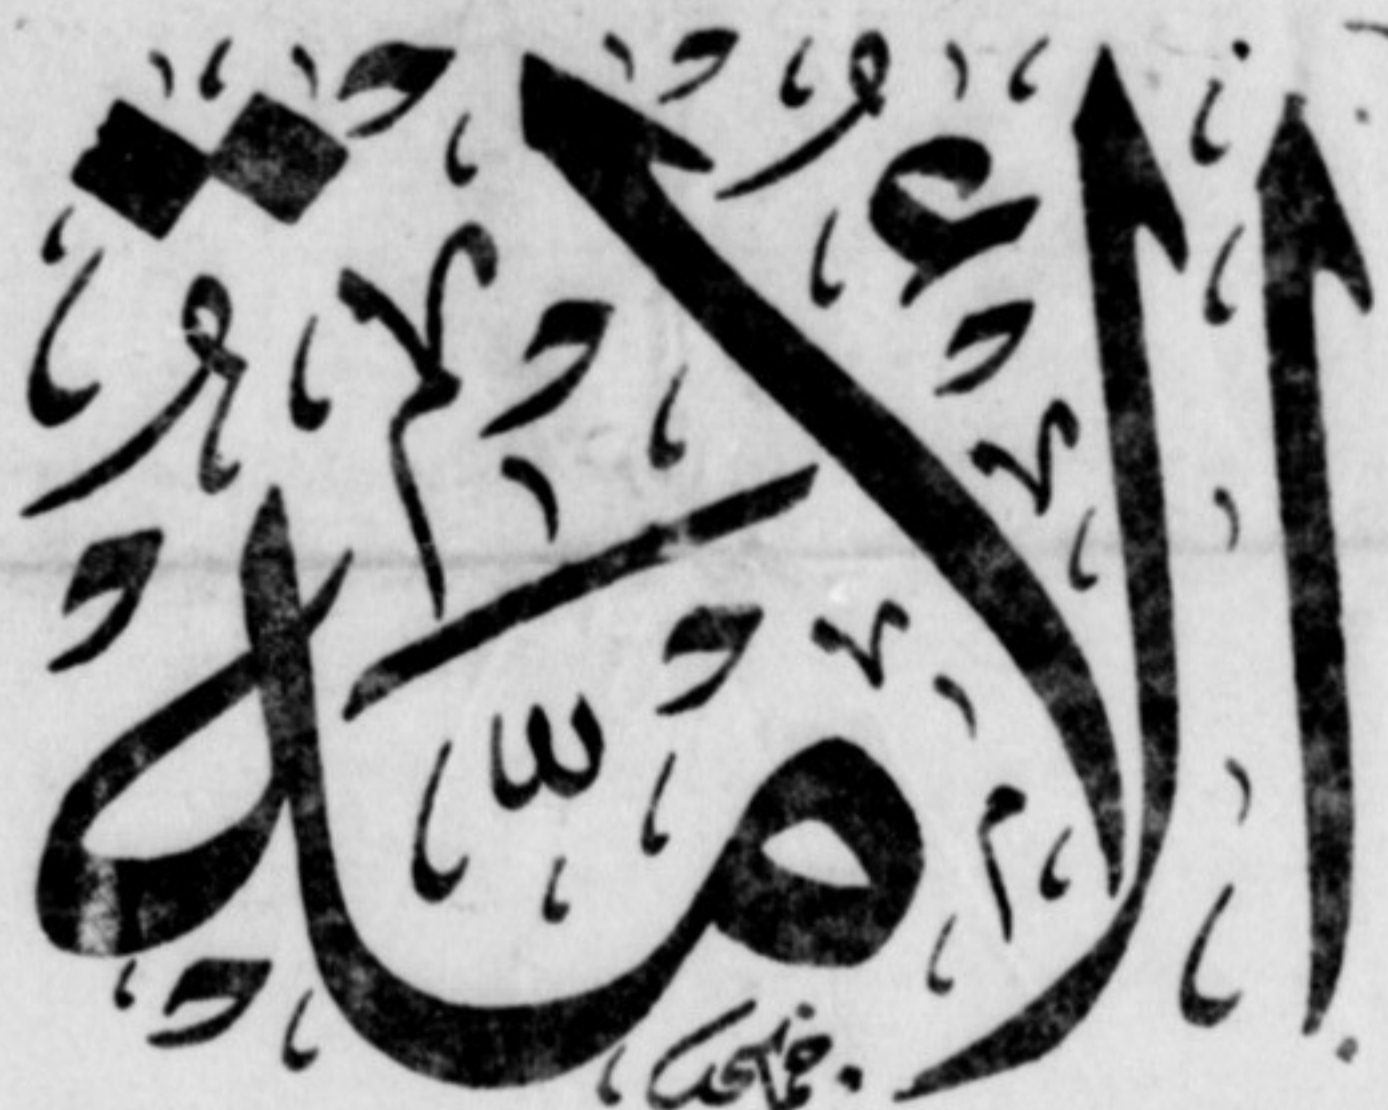 الأمة